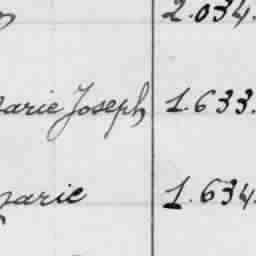 2.034.
Marie Joseph 1.633.
Marie 1.634.